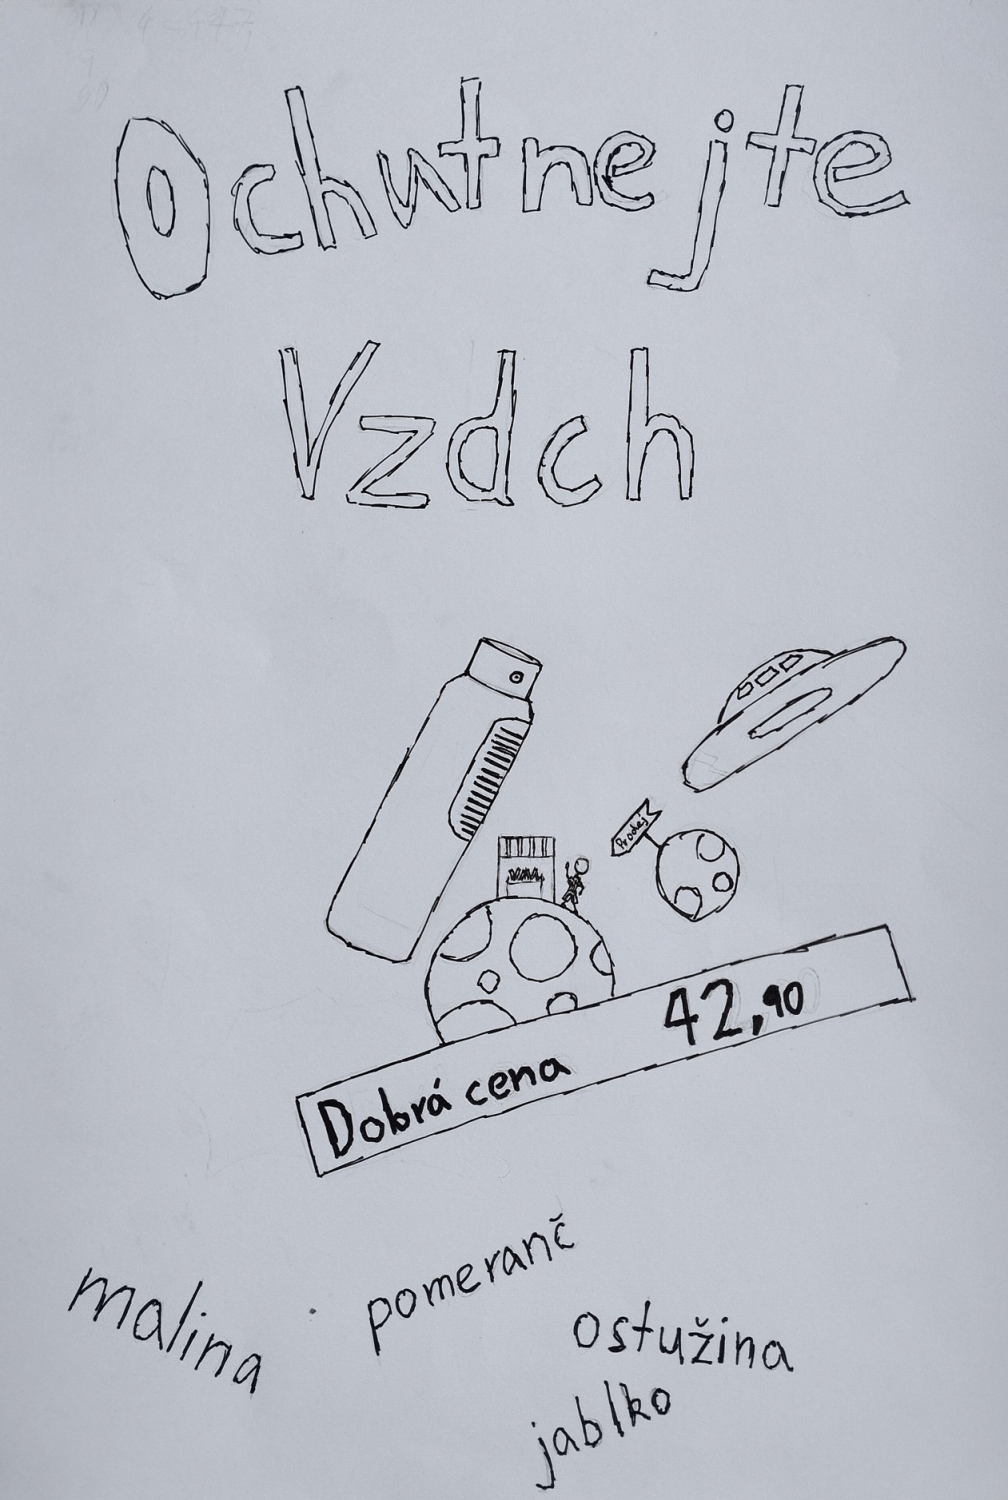 Ochutnejte
Vzdch
Prodej
Dobrá cena 42,90
malina
pomeranč
ostužina
jablko